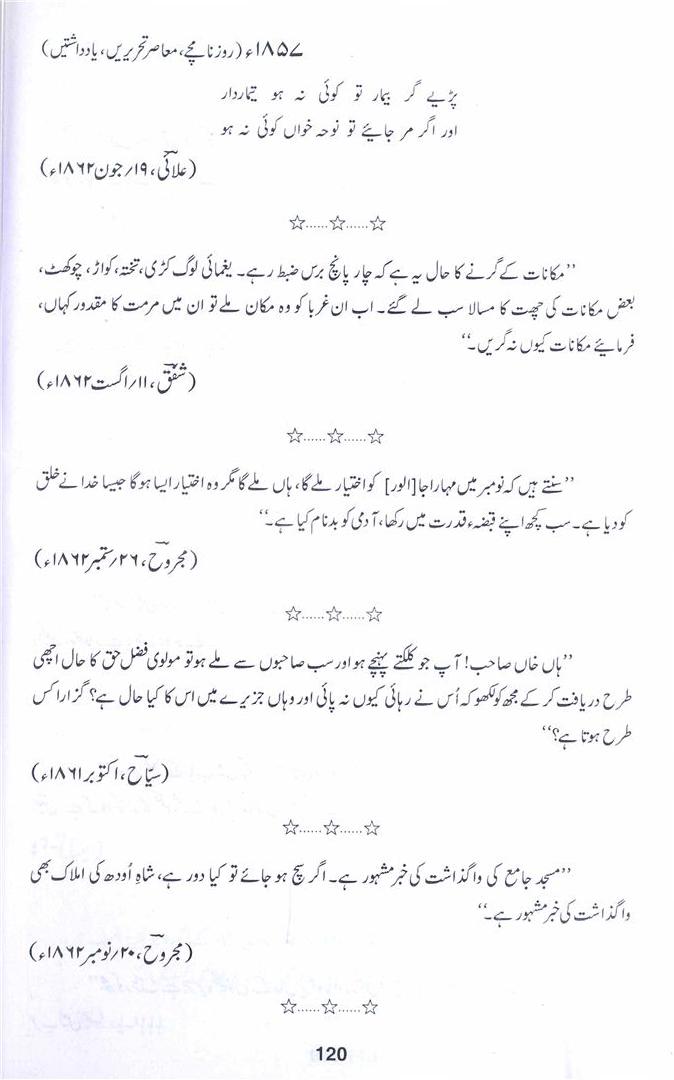 ۱۸۵۷ء (روزنامچے، معاصر تحریریں، یادداشتیں)
پڑیے گر بیمار تو کوئی نہ ہو تیماردار
اور اگر مر جائیے تو نوحہ خواں کوئی نہ ہو
(علائیؔ، ۱۹/جون ۱۸۶۲ء)
☆......☆......☆
’’مکانات کے گرنے کا حال یہ ہے کہ چار پانچ برس ضبط رہے۔ یغمائی لوگ کڑی، تختہ، کواڑ، چوکھٹ،
بعض مکانات کی چھت کا مسالا سب لے گئے۔ اب ان غربا کو وہ مکان ملے تو ان میں مرمت کا مقدور کہاں،
فرمائیے مکانات کیوں نہ گریں۔‘‘
(شفقؔ، ۱۱/اگست ۱۸۶۲ء)
☆......☆......☆
’’سنتے ہیں کہ نومبر میں مہاراجا [الور] کو اختیار ملے گا، ہاں ملے گا مگر وہ اختیار ایسا ہوگا جیسا خدا نے خلق
کو دیا ہے۔ سب کچھ اپنے قبضہء قدرت میں رکھا، آدمی کو بدنام کیا ہے۔‘‘
(مجروحؔ، ۲۶/ستمبر ۱۸۶۲ء)
☆......☆......☆
’’ہاں خاں صاحب! آپ جو کلکتے پہنچے ہو اور سب صاحبوں سے ملے ہو تو مولوی فضل حق کا حال اچھی
طرح دریافت کر کے مجھ کو لکھو کہ اُس نے رہائی کیوں نہ پائی اور وہاں جزیرے میں اس کا کیا حال ہے؟ گزارا کس
طرح ہوتا ہے؟‘‘
(سیّاحؔ، اکتوبر ۱۸۶۱ء)
☆......☆......☆
’’مسجد جامع کی واگذاشت کی خبر مشہور ہے۔ اگر سچ ہو جائے تو کیا دور ہے، شاہِ اُودھ کی املاک بھی
واگذاشت کی خبر مشہور ہے۔‘‘
(مجروحؔ، ۲۰/نومبر ۱۸۶۲ء)
☆......☆......☆
120